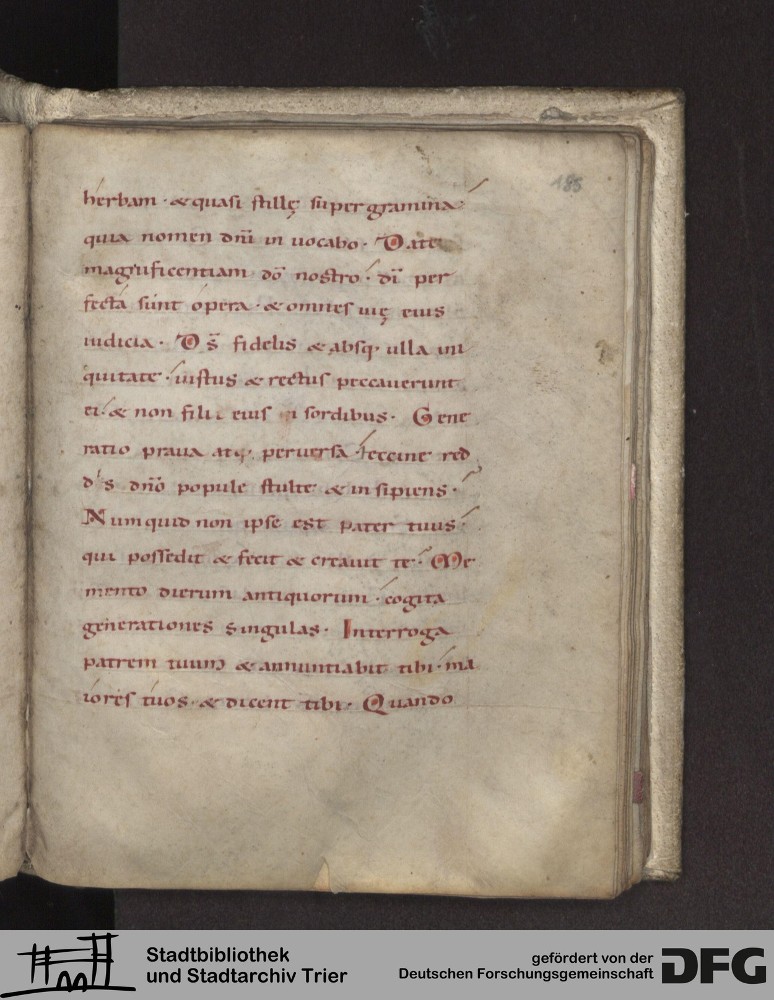 185
herbam · & quasi stillę super gramina
quia nomen dnī inuocabo · Date
magnificentiam dō nostro · dī per
fecta sunt opera · & omnes uię eius
iudicia · Ds̄ fidelis & absq· ulla ini
quitate · iustus & rectus peccauerunt
ei · & non filii eius in sordibus · Gene
ratio praua atq· peruersa · heccine red
dis dnō popule stulte & insipiens ·
Numquid non ipse est pater tuus
qui possedit & fecit & creauit te · Me
mento dierum antiquorum · cogita
generationes singulas · Interroga
patrem tuum & annuntiabit tibi · ma
iores tuos · & dicent tibi · Quando
Stadtbibliothek
und Stadtarchiv Trier
gefördert von der
Deutschen Forschungsgemeinschaft
DFG